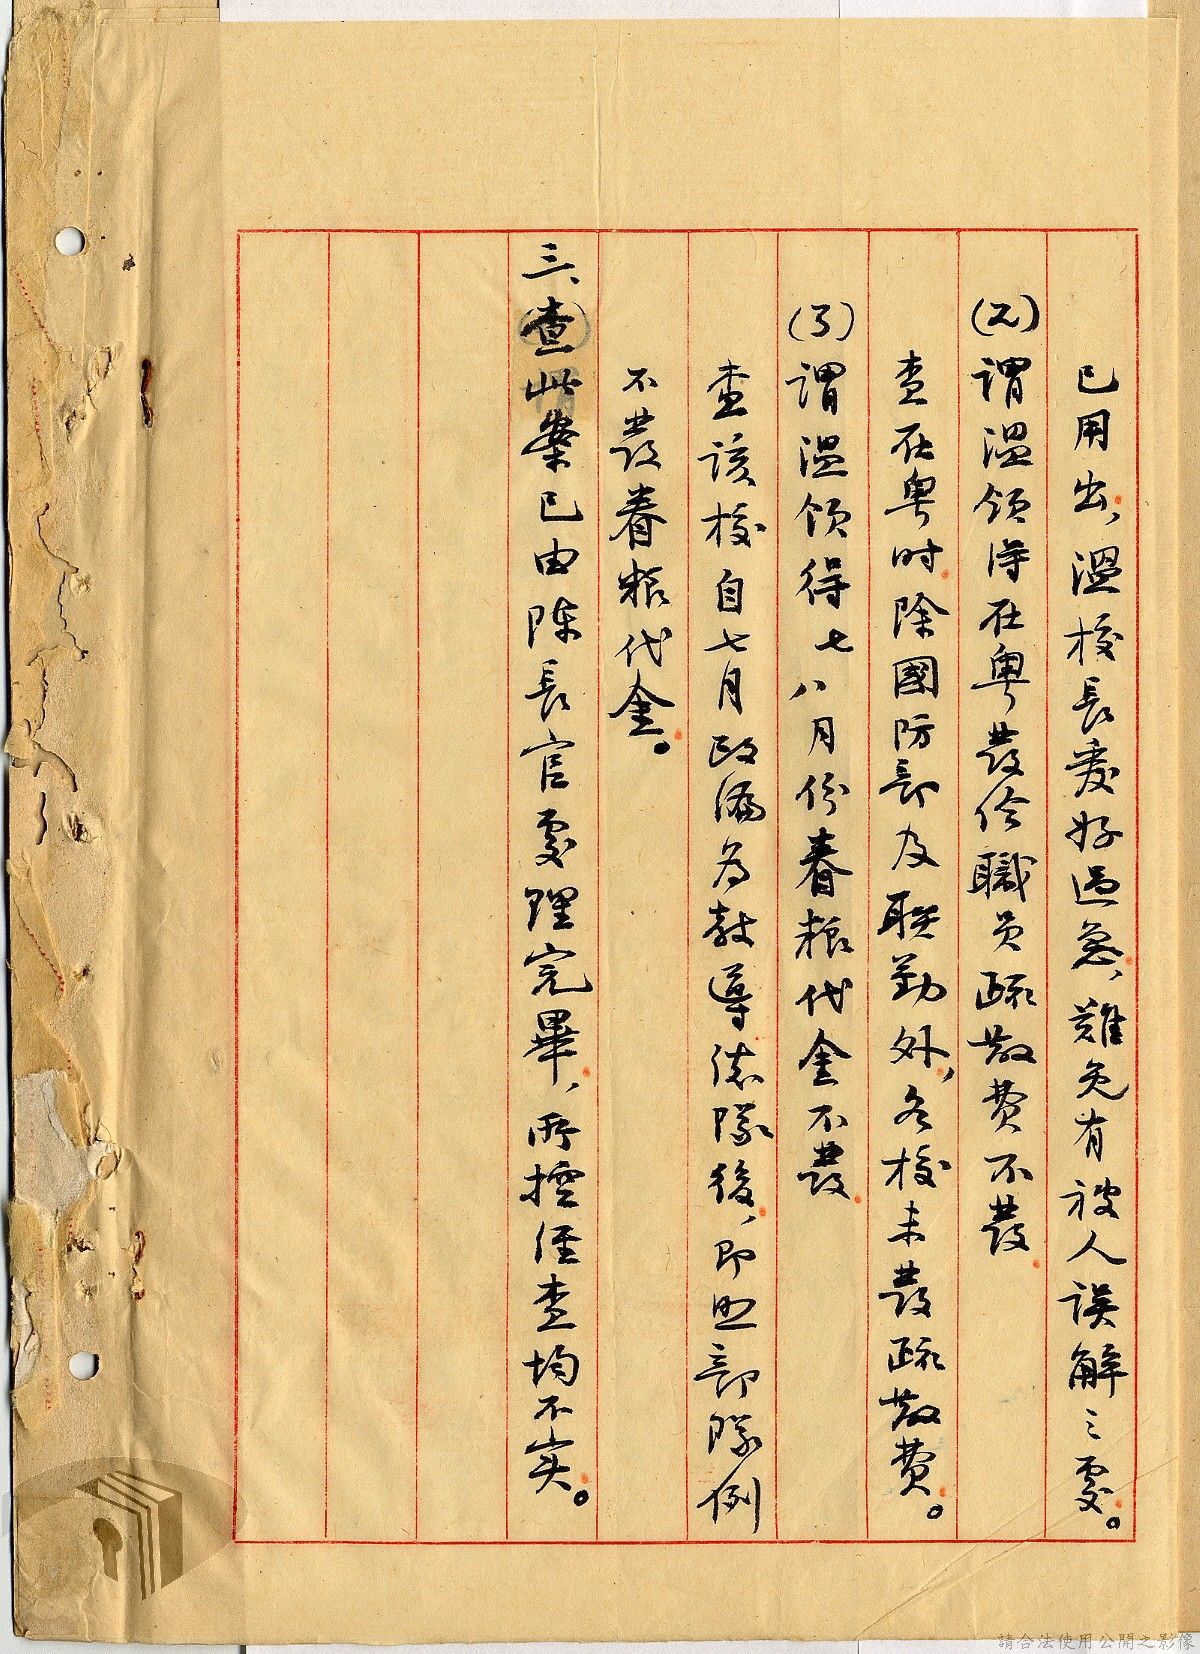 已用出，溫校長愛好過急，難免有被人誤解之處。
(2)謂溫領得在粵發給職員疏散費不發
查在粵時除國防部及聯勤外，各校未發疏散費。
(3)謂溫領得七八月份眷粮代金不發
查該校自七月改編為教導總隊後，即照部隊例
不發眷粮代金。
三、查此案已由陳長官處理完畢，所控經查均不实。
請合法使用公開之影像